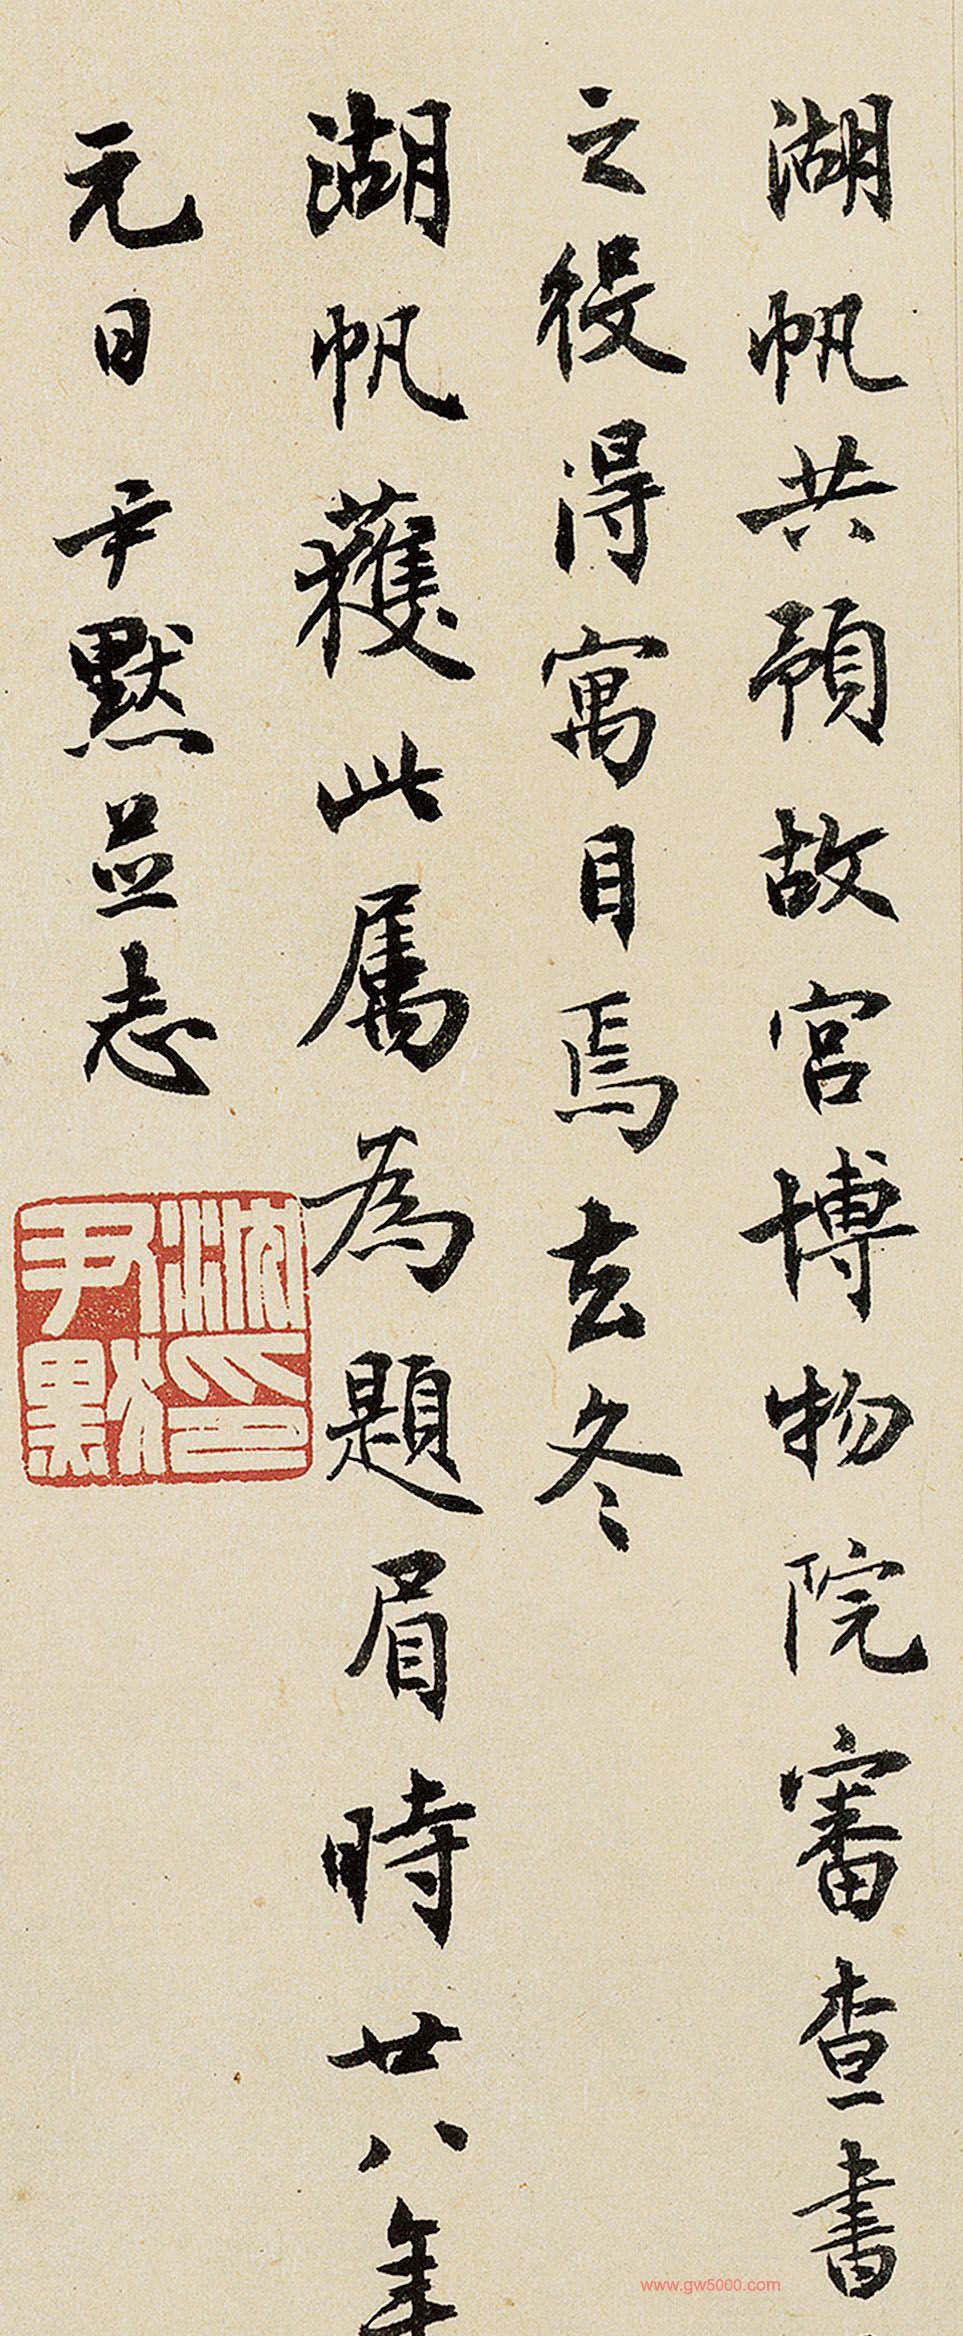 湖帆共預故宮博物院審查書
之役得寓目焉去冬
湖帆獲此屬為題眉時廿八年
元日尹默並志
沈尹默印
www.gw5000.com